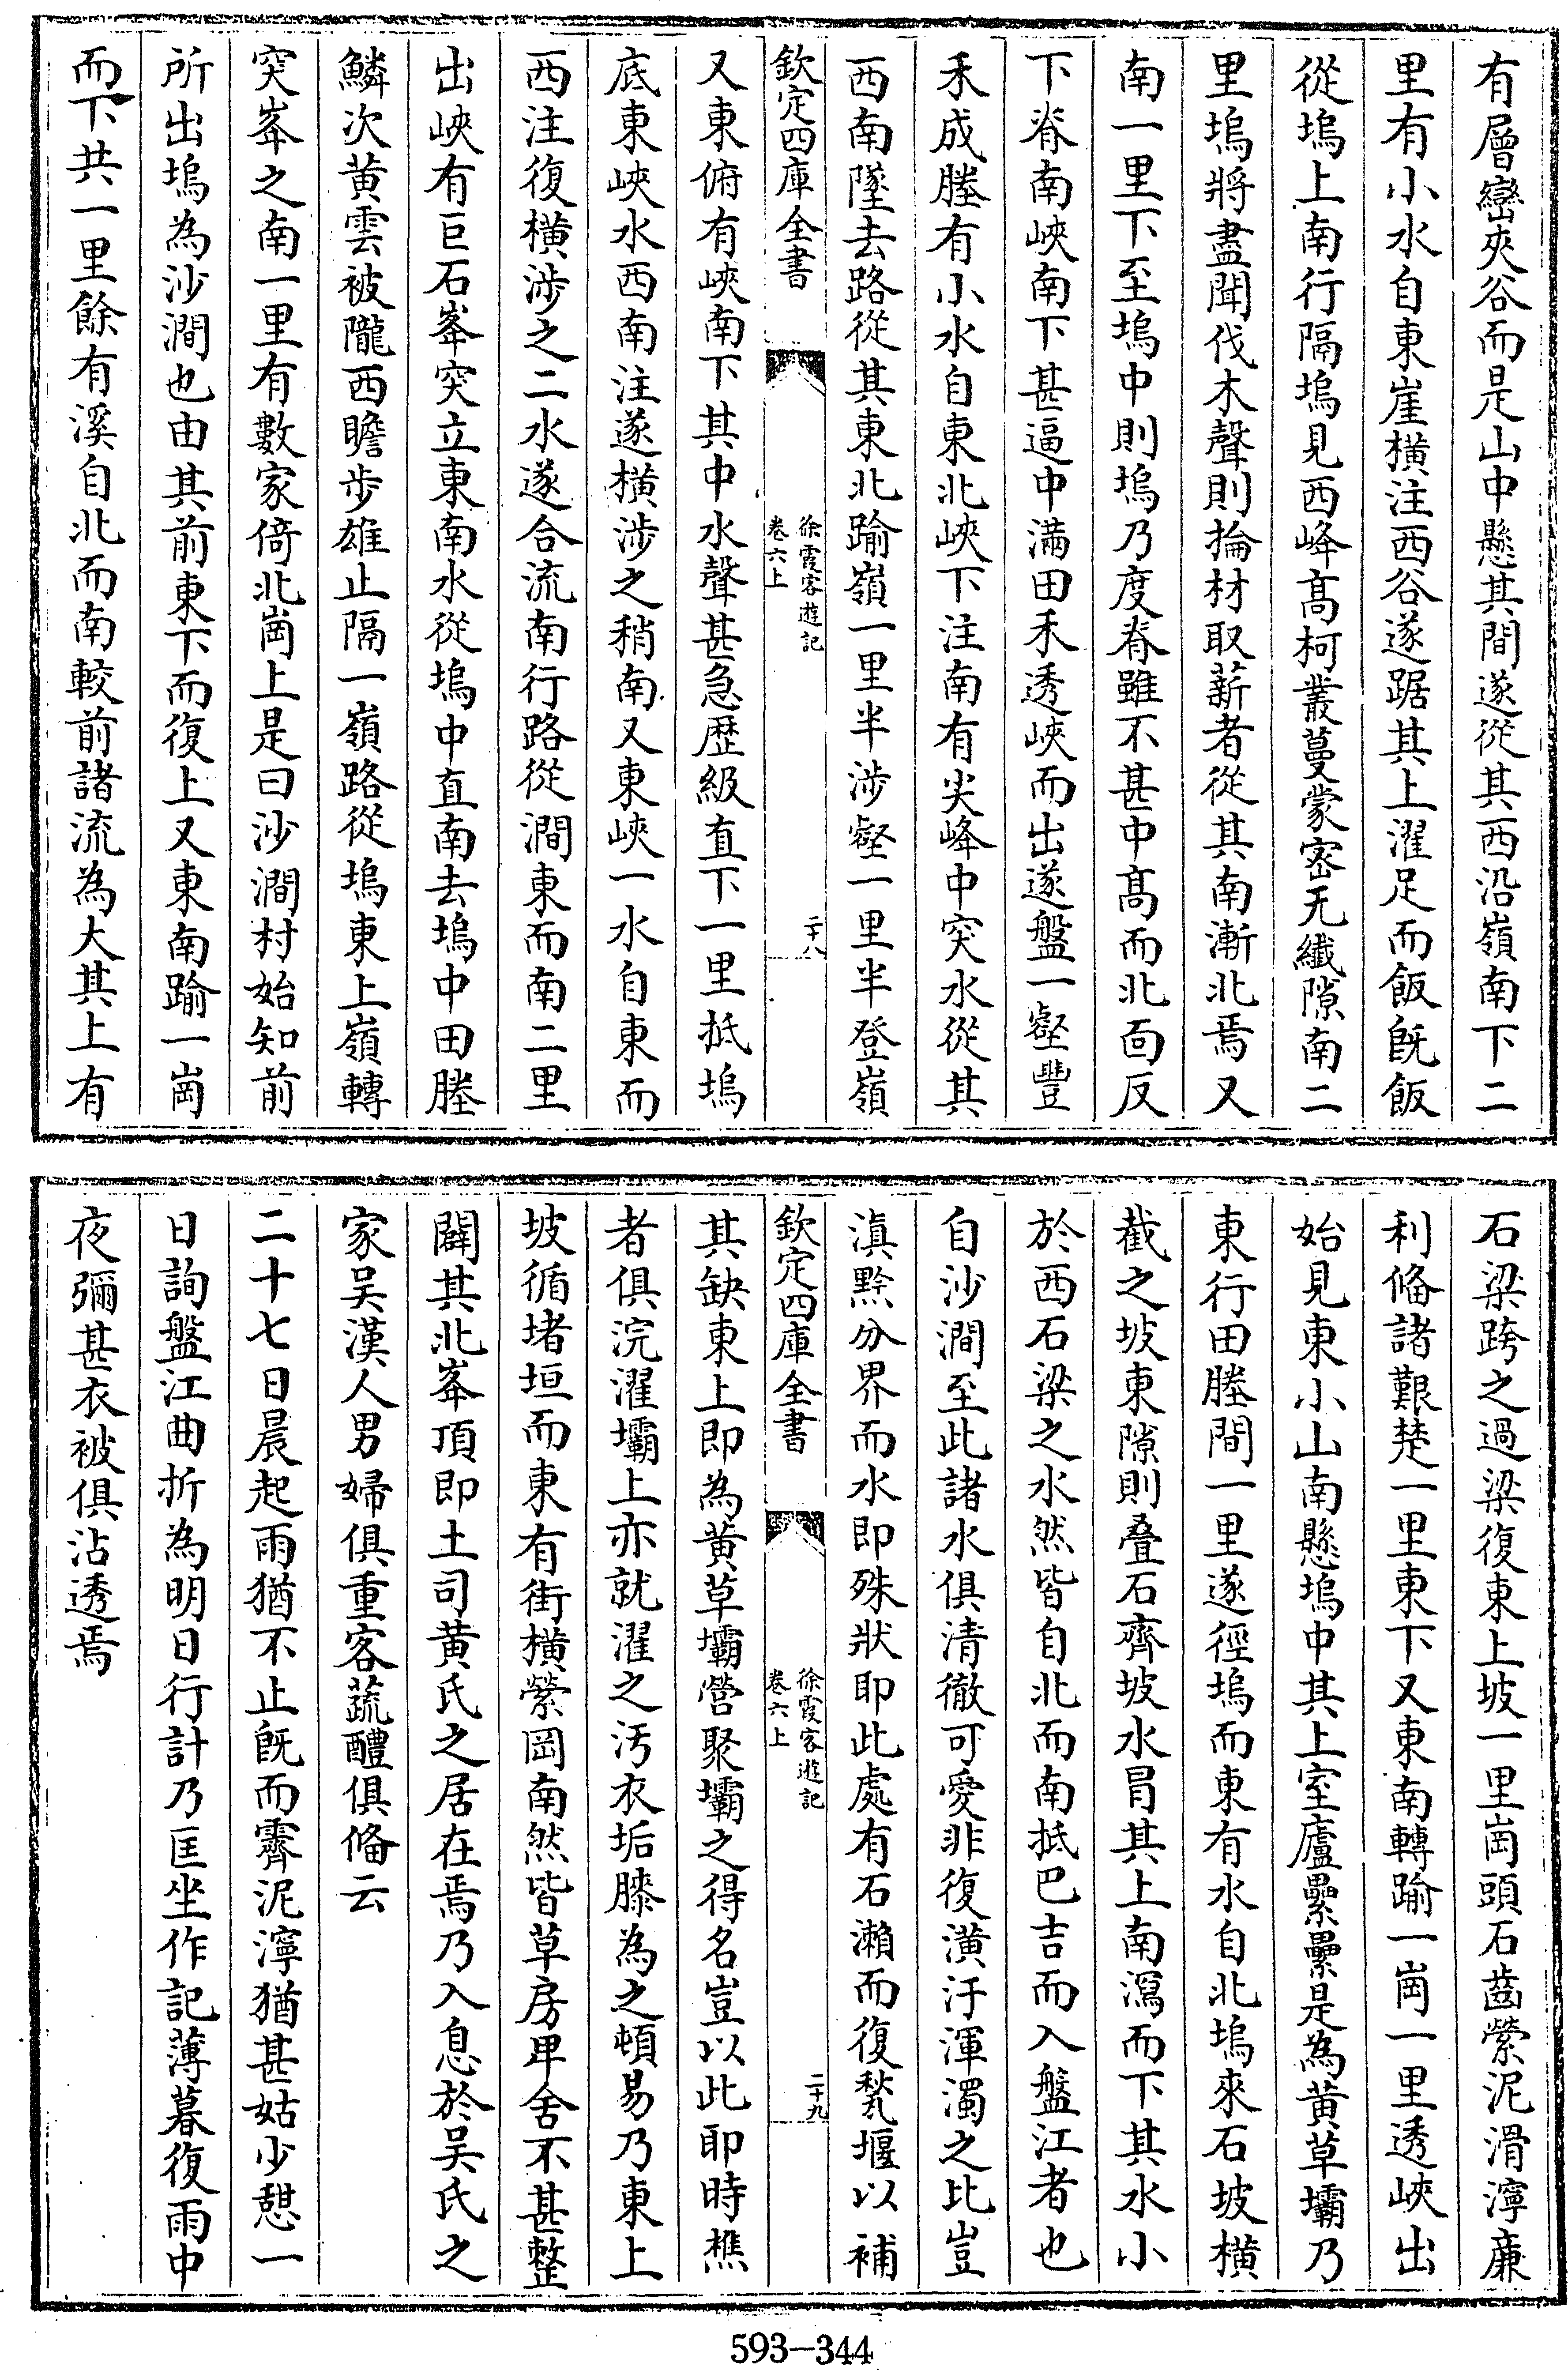 有層巒夾谷而是山中懸其間遂從其西沿嶺南下二
里有小水自東崖橫注西谷遂踞其上濯足而飯既飯
從塢上南行隔塢見西峰髙柯叢蔓蒙密无纖隙南二
里塢將盡聞伐木聲則掄材取薪者從其南漸北焉又
南一里下至塢中則塢乃度脊雖不甚中髙而北面反
下脊南峽南下甚逼中滿田禾透峽而出遂盤一壑豐
禾成塍有小水自東北峽下注南有尖峰中突水從其
西南墜去路從其東北踰嶺一里半涉壑一里半登嶺
欽定四庫全書
徐霞客遊記
卷六上
二十八
又東俯有峽南下其中水聲甚急歴級直下一里抵塢
底東峽水西南注遂橫涉之稍南又東峽一水自東而
西注復橫涉之二水遂合流南行路從澗東而南二里
出峽有巨石峯突立東南水從塢中直南去塢中田塍
鱗次黄雲被隴西瞻步雄止隔一嶺路從塢東上嶺轉
突峯之南一里有數家倚北崗上是曰沙澗村始知前
所出塢為沙澗也由其前東下而復上又東南踰一崗
而下共一里餘有溪自北而南較前諸流為大其上有
石梁跨之過梁復東上坡一里崗頭石齒縈泥滑濘廉
利俻諸艱楚一里東下又東南轉踰一崗一里透峽出
始見東小山南懸塢中其上室廬纍纍是為黄草壩乃
東行田塍間一里遂徑塢而東有水自北塢來石坡橫
截之坡東隙則叠石齊坡水冐其上南瀉而下其水小
於西石梁之水然皆自北而南抵巴吉而入盤江者也
自沙澗至此諸水俱清徹可愛非復潢汙渾濁之比豈
滇黔分界而水即殊狀耶此處有石瀨而復甃堰以補
欽定四庫全書
徐霞客遊記
卷六上
二十九
其缺東上即為黄草壩營聚壩之得名豈以此耶時樵
者俱浣濯壩上亦就濯之汚衣垢膝為之頓易乃東上
坡循堵垣而東有街橫縈岡南然皆草房卑舍不甚整
闢其北峯頂即土司黄氏之居在焉乃入息於吴氏之
家吴漢人男婦俱重客蔬醴俱俻云
二十七日晨起雨猶不止既而霽泥濘猶甚姑少憇一
日詢盤江曲折為明日行計乃匡坐作記薄暮復雨中
夜彌甚衣被俱沾透焉
593-344